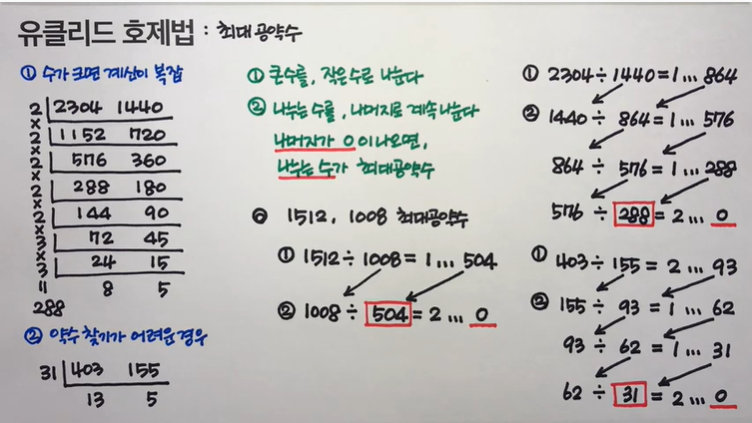 유클리드 호제법 : 최대공약수
① 수가 크면 계산이 복잡
2 2304 1440
×
2 1152 720
×
2 576 360
×
2 288 180
×
2 144 90
×
3 72 45
×
3 24 15
॥ 8 5
288
② 약수 찾기가 어려운 경우
31 403 155
13 5
① 큰수를, 작은수로 나눈다
② 나누는 수를, 나머지로 계속 나눈다
나머지가 0이 나오면,
나누는 수가 최대공약수
◎ 1512, 1008 최대공약수
① 1512 ÷ 1008 = 1 ... 504
② 1008 ÷ 504 = 2 ... 0
① 2304 ÷ 1440 = 1 ... 864
② 1440 ÷ 864 = 1 ... 576
864 ÷ 576 = 1 ... 288
576 ÷ 288 = 2 ... 0
① 403 ÷ 155 = 2 ... 93
② 155 ÷ 93 = 1 ... 62
93 ÷ 62 = 1 ... 31
62 ÷ 31 = 2 ... 0